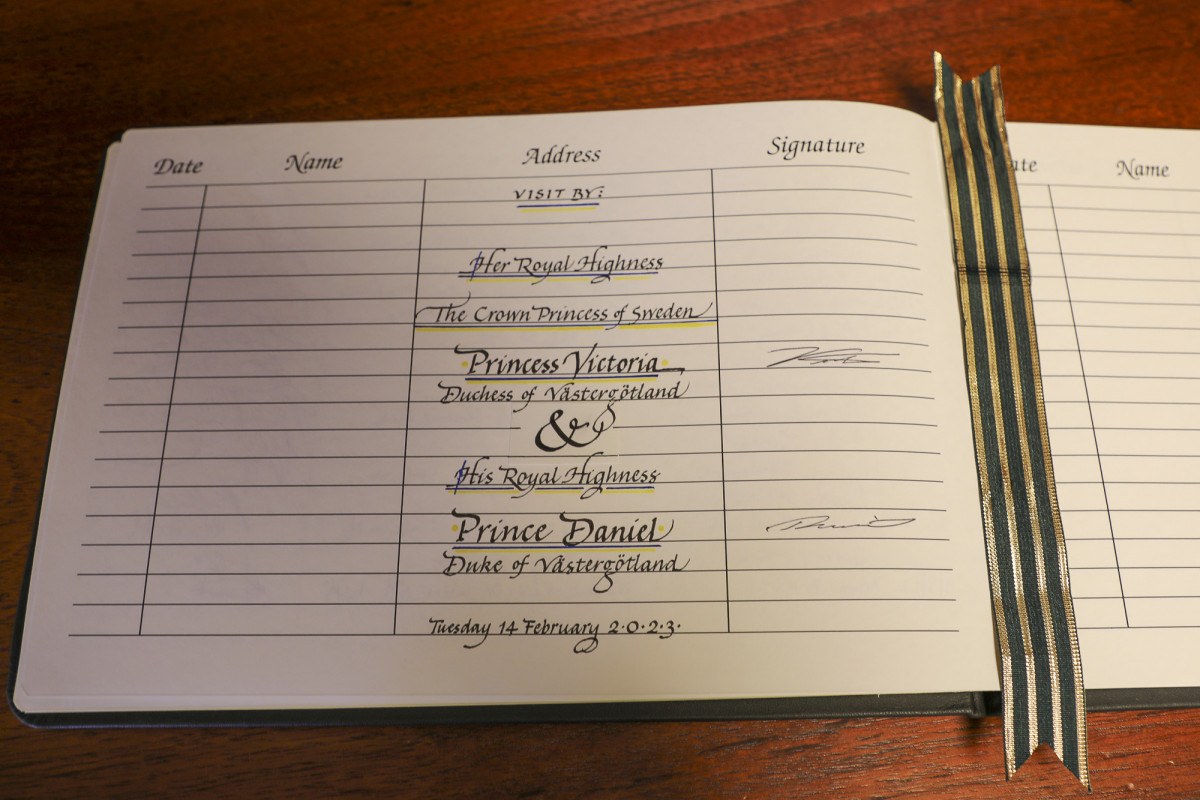 Date Name Address Signature
VISIT BY:
Her Royal Highness
The Crown Princess of Sweden
Princess Victoria
Duchess of Västergötland
&
His Royal Highness
Prince Daniel
Duke of Västergötland
Tuesday 14 February 2·0·2·3·
ate Name